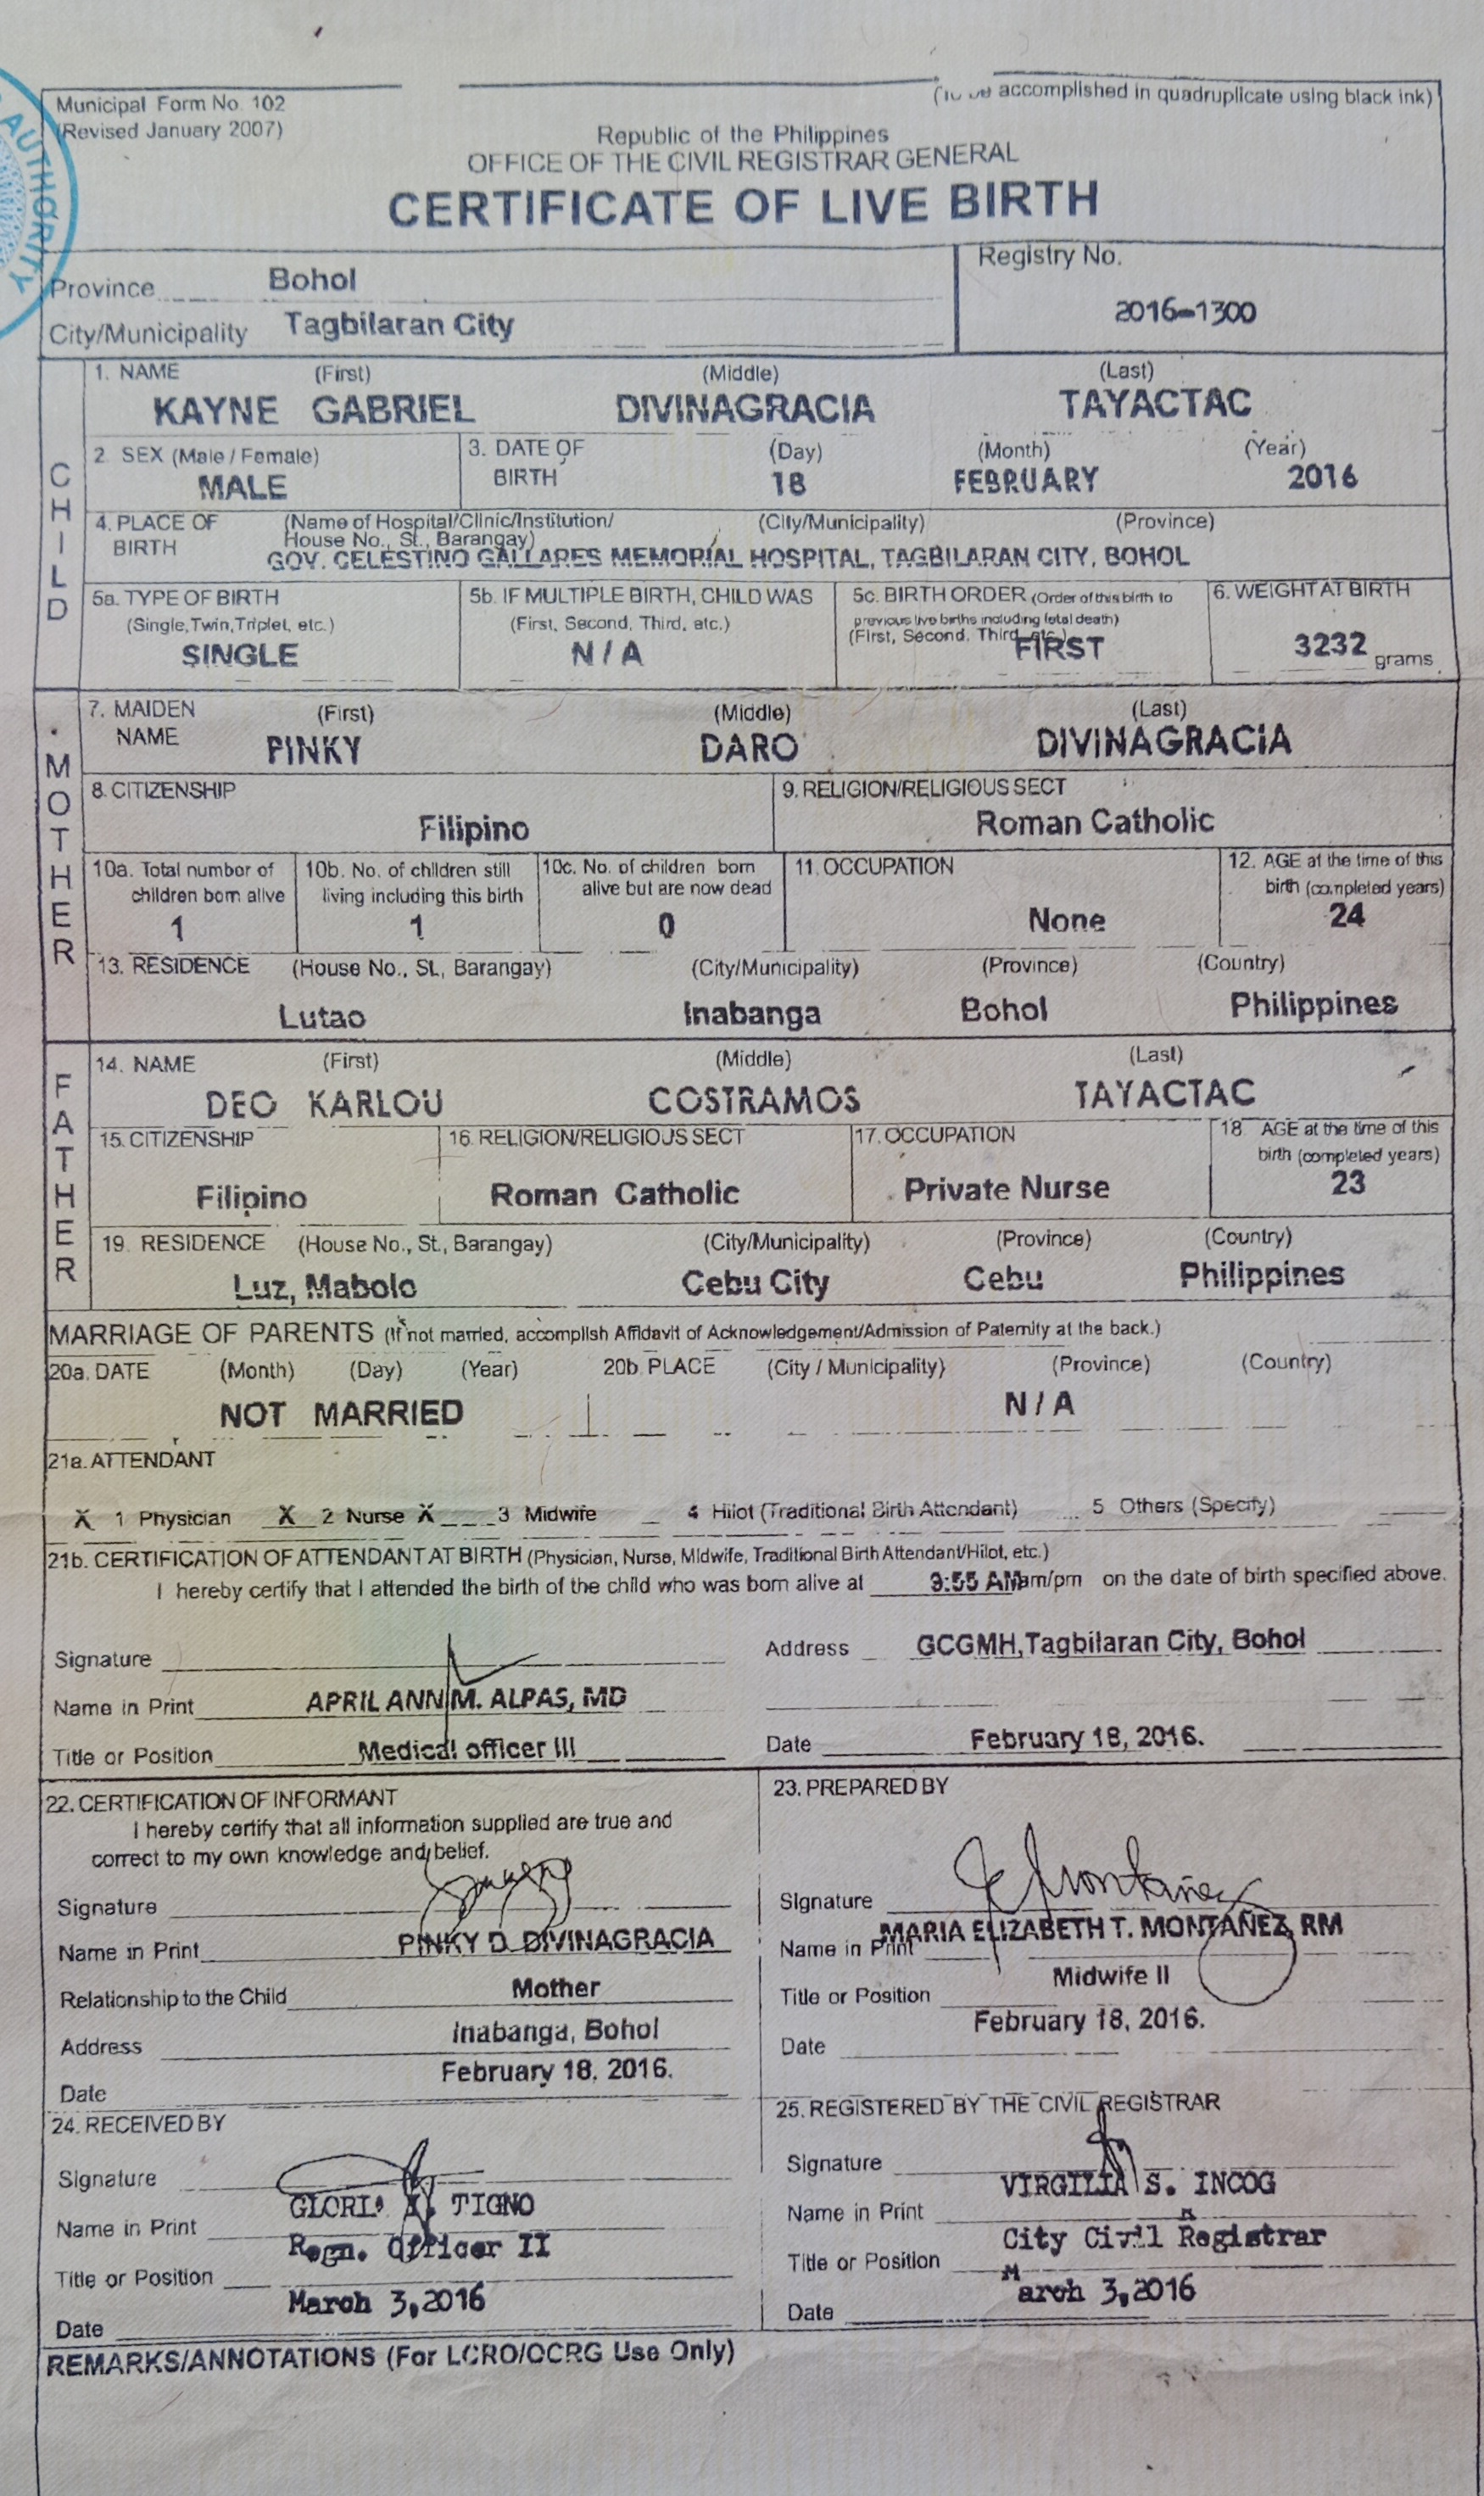 Municipal Form No. 102
(Revised January 2007)
(To be accomplished in quadruplicate using black ink)
AUTHORITY
Republic of the Philippines
OFFICE OF THE CIVIL REGISTRAR GENERAL
CERTIFICATE OF LIVE BIRTH
Province Bohol
City/Municipality Tagbilaran City
Registry No.
2016-1300
CHILD
1. NAME (First) (Middle) (Last)
KAYNE GABRIEL DIVINAGRACIA TAYACTAC
2. SEX (Male / Female) 3. DATE OF BIRTH (Day) (Month) (Year)
MALE 18 FEBRUARY 2016
4. PLACE OF BIRTH (Name of Hospital/Clinic/Institution/ (City/Municipality) (Province)
House No., St., Barangay)
GOV. CELESTINO GALLARES MEMORIAL HOSPITAL, TAGBILARAN CITY, BOHOL
5a. TYPE OF BIRTH 5b. IF MULTIPLE BIRTH, CHILD WAS 5c. BIRTH ORDER (Order of this birth to 6. WEIGHT AT BIRTH
(Single, Twin, Triplet, etc.) (First, Second, Third, etc.) previous live births including fetal death)
(First, Second, Third, etc.)
SINGLE N/A FIRST 3232 grams
MOTHER
7. MAIDEN NAME (First) (Middle) (Last)
PINKY DARO DIVINAGRACIA
8. CITIZENSHIP 9. RELIGION/RELIGIOUS SECT
Filipino Roman Catholic
10a. Total number of children born alive 10b. No. of children still living including this birth 10c. No. of children born alive but are now dead 11. OCCUPATION 12. AGE at the time of this birth (completed years)
1 1 0 None 24
13. RESIDENCE (House No., St., Barangay) (City/Municipality) (Province) (Country)
Lutao Inabanga Bohol Philippines
FATHER
14. NAME (First) (Middle) (Last)
DEO KARLOU COSTRAMOS TAYACTAC
15. CITIZENSHIP 16. RELIGION/RELIGIOUS SECT 17. OCCUPATION 18. AGE at the time of this birth (completed years)
Filipino Roman Catholic Private Nurse 23
19. RESIDENCE (House No., St., Barangay) (City/Municipality) (Province) (Country)
Luz, Mabolo Cebu City Cebu Philippines
MARRIAGE OF PARENTS (If not married, accomplish Affidavit of Acknowledgement/Admission of Paternity at the back.)
20a. DATE (Month) (Day) (Year) 20b. PLACE (City / Municipality) (Province) (Country)
NOT MARRIED N/A
21a. ATTENDANT
X 1 Physician X 2 Nurse X 3 Midwife 4 Hilot (Traditional Birth Attendant) 5 Others (Specify)
21b. CERTIFICATION OF ATTENDANT AT BIRTH (Physician, Nurse, Midwife, Traditional Birth Attendant/Hilot, etc.)
I hereby certify that I attended the birth of the child who was born alive at AM am/pm on the date of birth specified above.
Signature Address GCGMH, Tagbilaran City, Bohol
Name in Print APRIL ANN M. ALPAS, MD
Title or Position Medical officer III Date February 18, 2016.
22. CERTIFICATION OF INFORMANT
I hereby certify that all information supplied are true and
correct to my own knowledge and belief.
Signature
Name in Print PINKY D. DIVINAGRACIA
Relationship to the Child Mother
Address Inabanga, Bohol
Date February 18, 2016.
23. PREPARED BY
Signature
Name in Print MARIA ELIZABETH T. MONTAÑEZ, RM
Title or Position Midwife II
Date February 18, 2016.
24. RECEIVED BY
Signature
Name in Print TIGNO
Title or Position Regn. Officer II
Date March 3,2016
25. REGISTERED BY THE CIVIL REGISTRAR
Signature
Name in Print VIRGILIA S. INCOG
Title or Position City Civil Registrar
Date March 3,2016
REMARKS/ANNOTATIONS (For LCRO/OCRG Use Only)